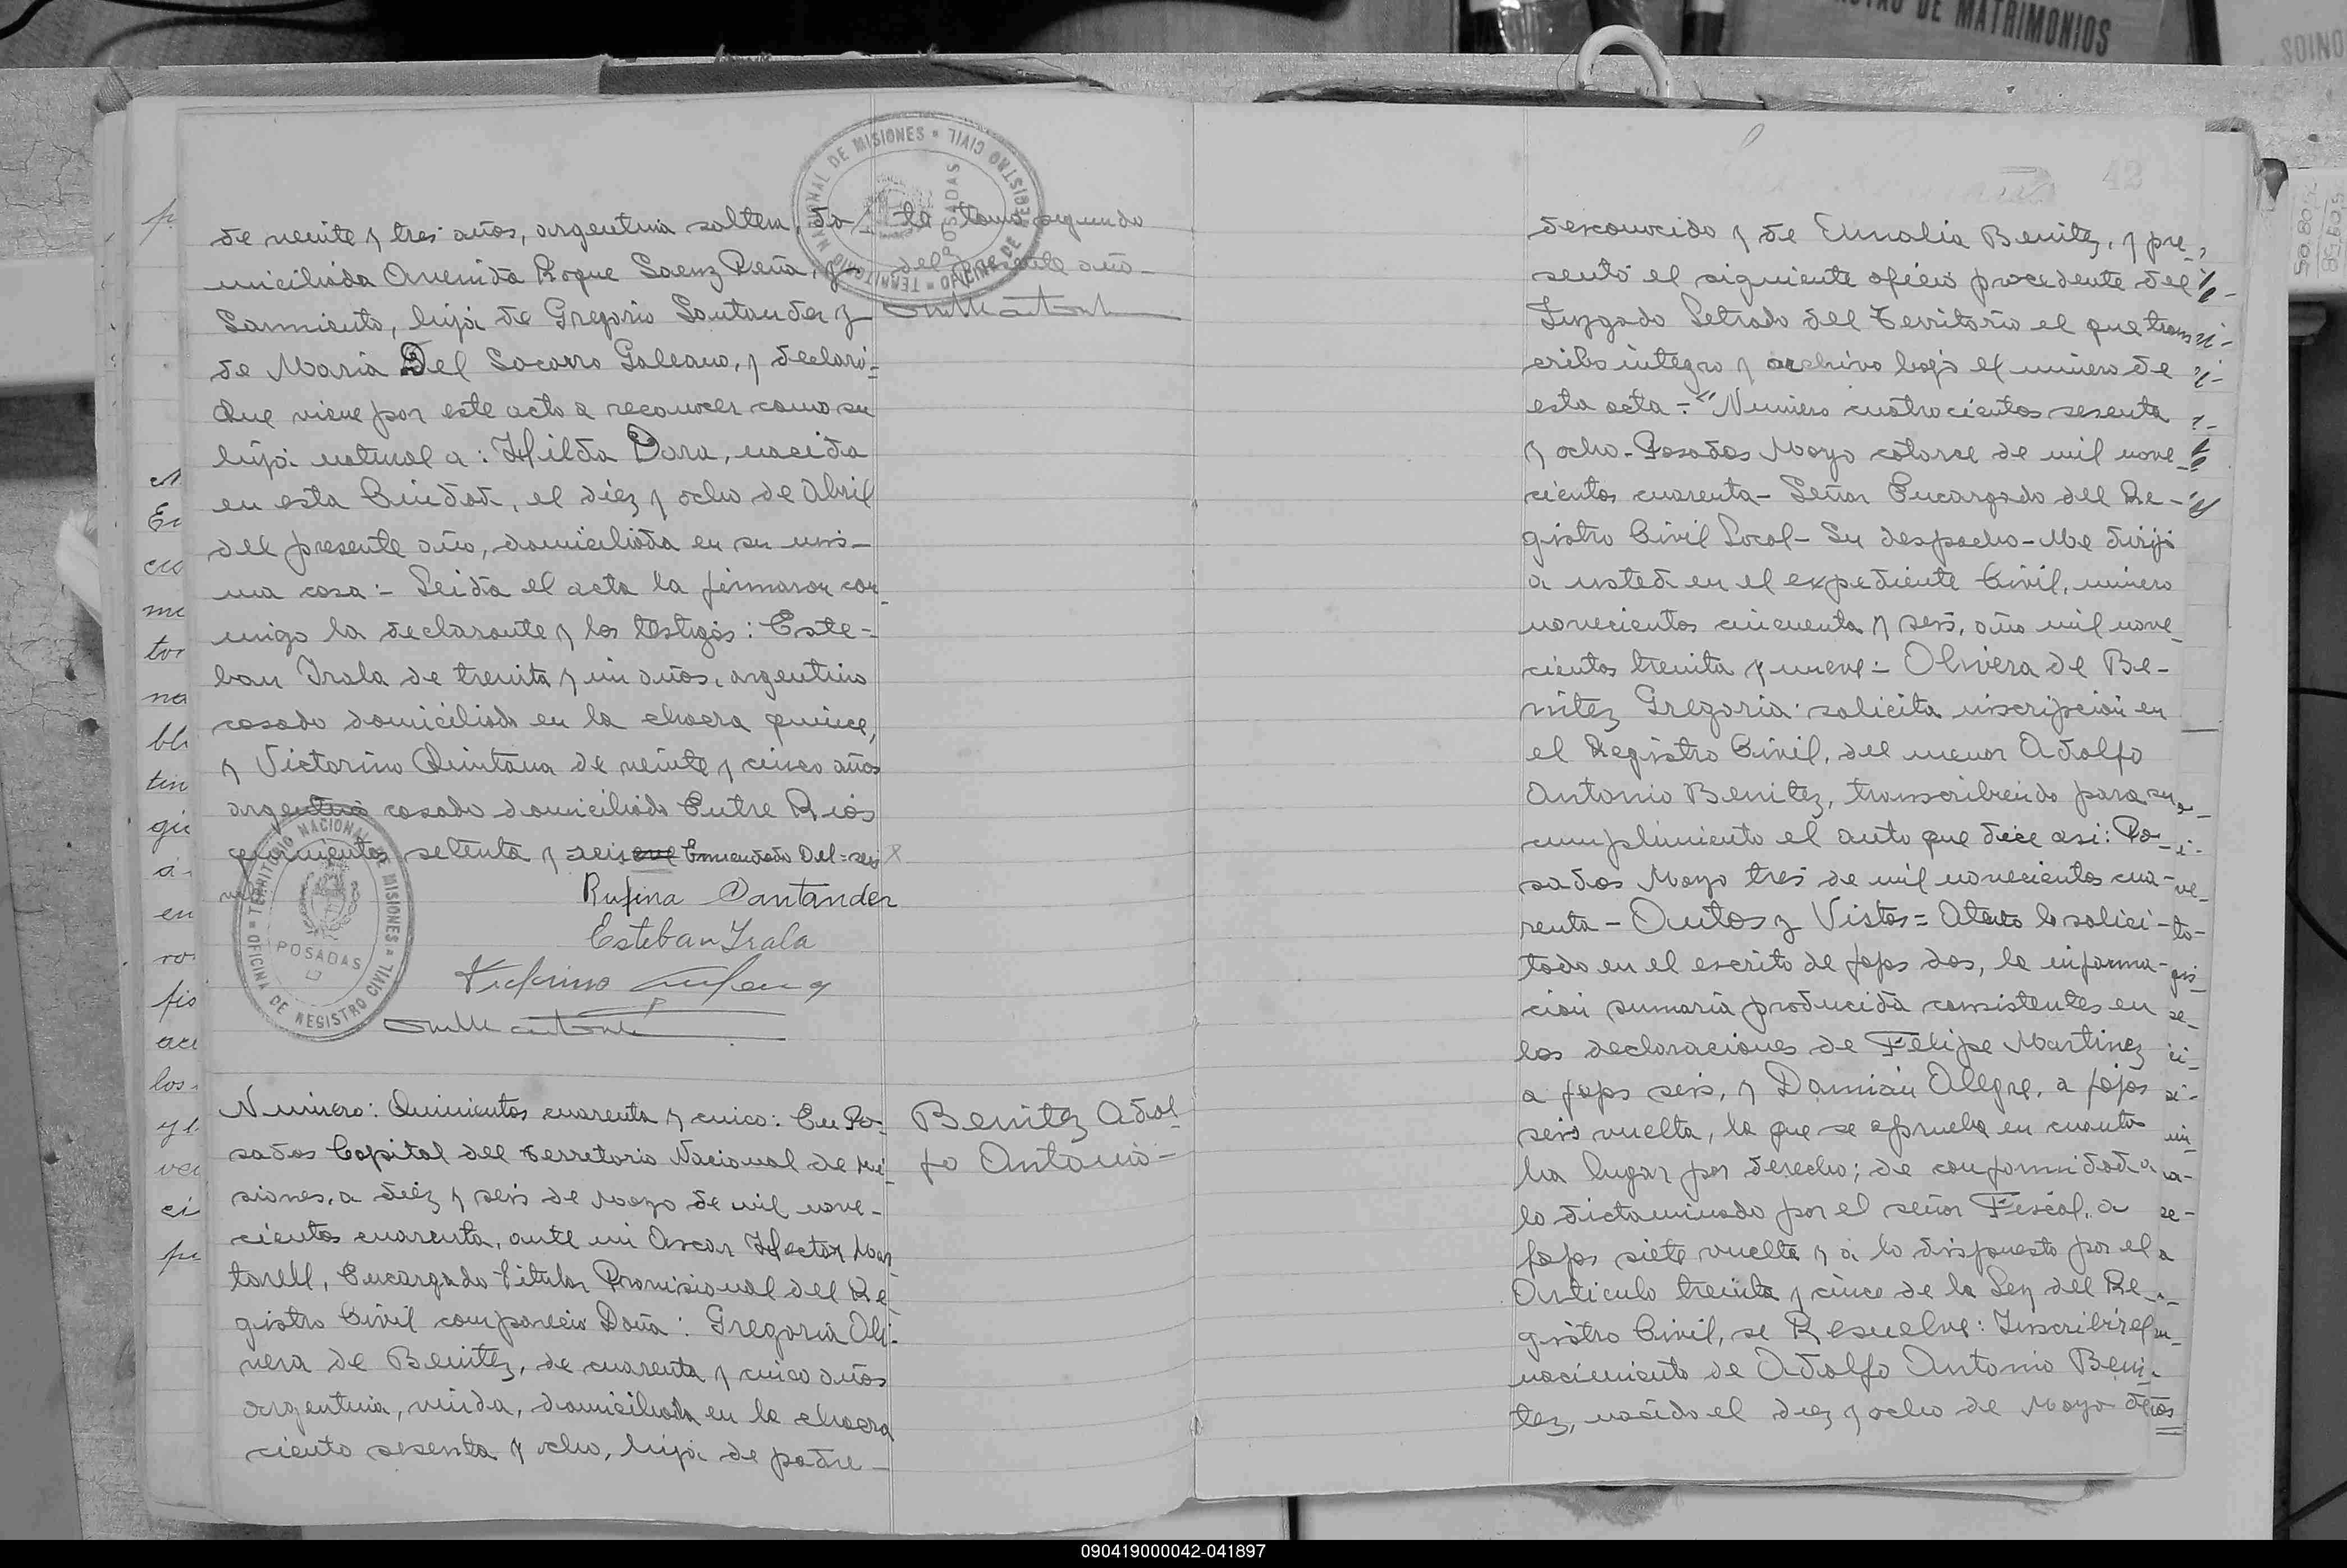 de veinte y tres años, argentina soltera, do-
miciliada Avenida Roque Saenz Peña, y
Sarmiento, hija de Gregorio Santander y
de Maria Del Socorro Galeano, y declaró:
Que viene por este acto a reconocer como su
hija natural a: Hilda Dora, nacida
en esta Ciudad, el diez y ocho de Abril
del presente año, domiciliada en su mis-
ma casa:- Leida el acta la firmaron con-
migo la declarante y los testigos: Este-
ban Irala de treinta y un años, argentino
casado domiciliado en la chacra quince,
y Victorino Quintana de veinte y cinco años
argentino casado domiciliado Entre Rios
quinientos setenta y seis Enmendado Del-seis
Rufina Santander
Esteban Irala
TERRITORIO NACIONAL DE MISIONES
OFICINA DE REGISTRO CIVIL
POSADAS
la tomo segundo
del presente año-
TERRITORIO NACIONAL DE MISIONES
OFICINA DE REGISTRO CIVIL
POSADAS
Numero: Quinientos cuarenta y cinco: En Po-
sadas Capital del Territorio Nacional de Mi-
siones, a diez y seis de Mayo de mil nove-
cientos cuarenta, ante mi Oscar Hector Mar-
torell, Encargado Titular Provisional del Re-
gistro Civil comparecio Doña: Gregoria Oli-
vera de Benitez, de cuarenta y cinco años
argentina, viuda, domiciliada en la chacra
ciento sesenta y ocho, hija de padre-
Benitez Adol-
fo Antonio-
42
desconocido y de Emalia Benitez, y pre-
sentó el siguiente oficio procedente del
Juzgado Letrado del Territorio el que trans-
cribo integro y archivo bajo el numero de
esta acta:- "Numero cuatrocientos sesenta
y ocho- Posadas Mayo catorce de mil nove-
cientos cuarenta- Señor Encargado del Re-
gistro Civil Local- Su despacho- Me dirijo
a usted en el expediente Civil, numero
novecientos cincuenta y seis, año mil nove-
cientos treinta y nueve:- Olivera de Be-
nitez Gregoria: solicita inscripción en
el Registro Civil, del menor Adolfo
Antonio Benitez, transcribiendo para su
cumplimiento el auto que dice asi: Po-
sadas Mayo tres de mil novecientos cua-
renta - Autos y Vistos = Atento lo solici-
tado en el escrito de fojas dos, la informa-
ción sumaria producida consistentes en
las declaraciones de Felipe Martinez
a fojas seis, y Damián Alegre, a fojas
seis vuelta, la que se aprueba en cuanto
ha lugar por derecho; de conformidad a
lo dictaminado por el señor Fiscal, a
fojas siete vuelta y a lo dispuesto por el
Articulo treinta y cinco de la Ley del Re-
gistro Civil, se Resuelve: Inscribir el
nacimiento de Adolfo Antonio Beni-
tez, nacido el diez y ocho de Mayo de
DE MATRIMONIOS
090419000042-041897